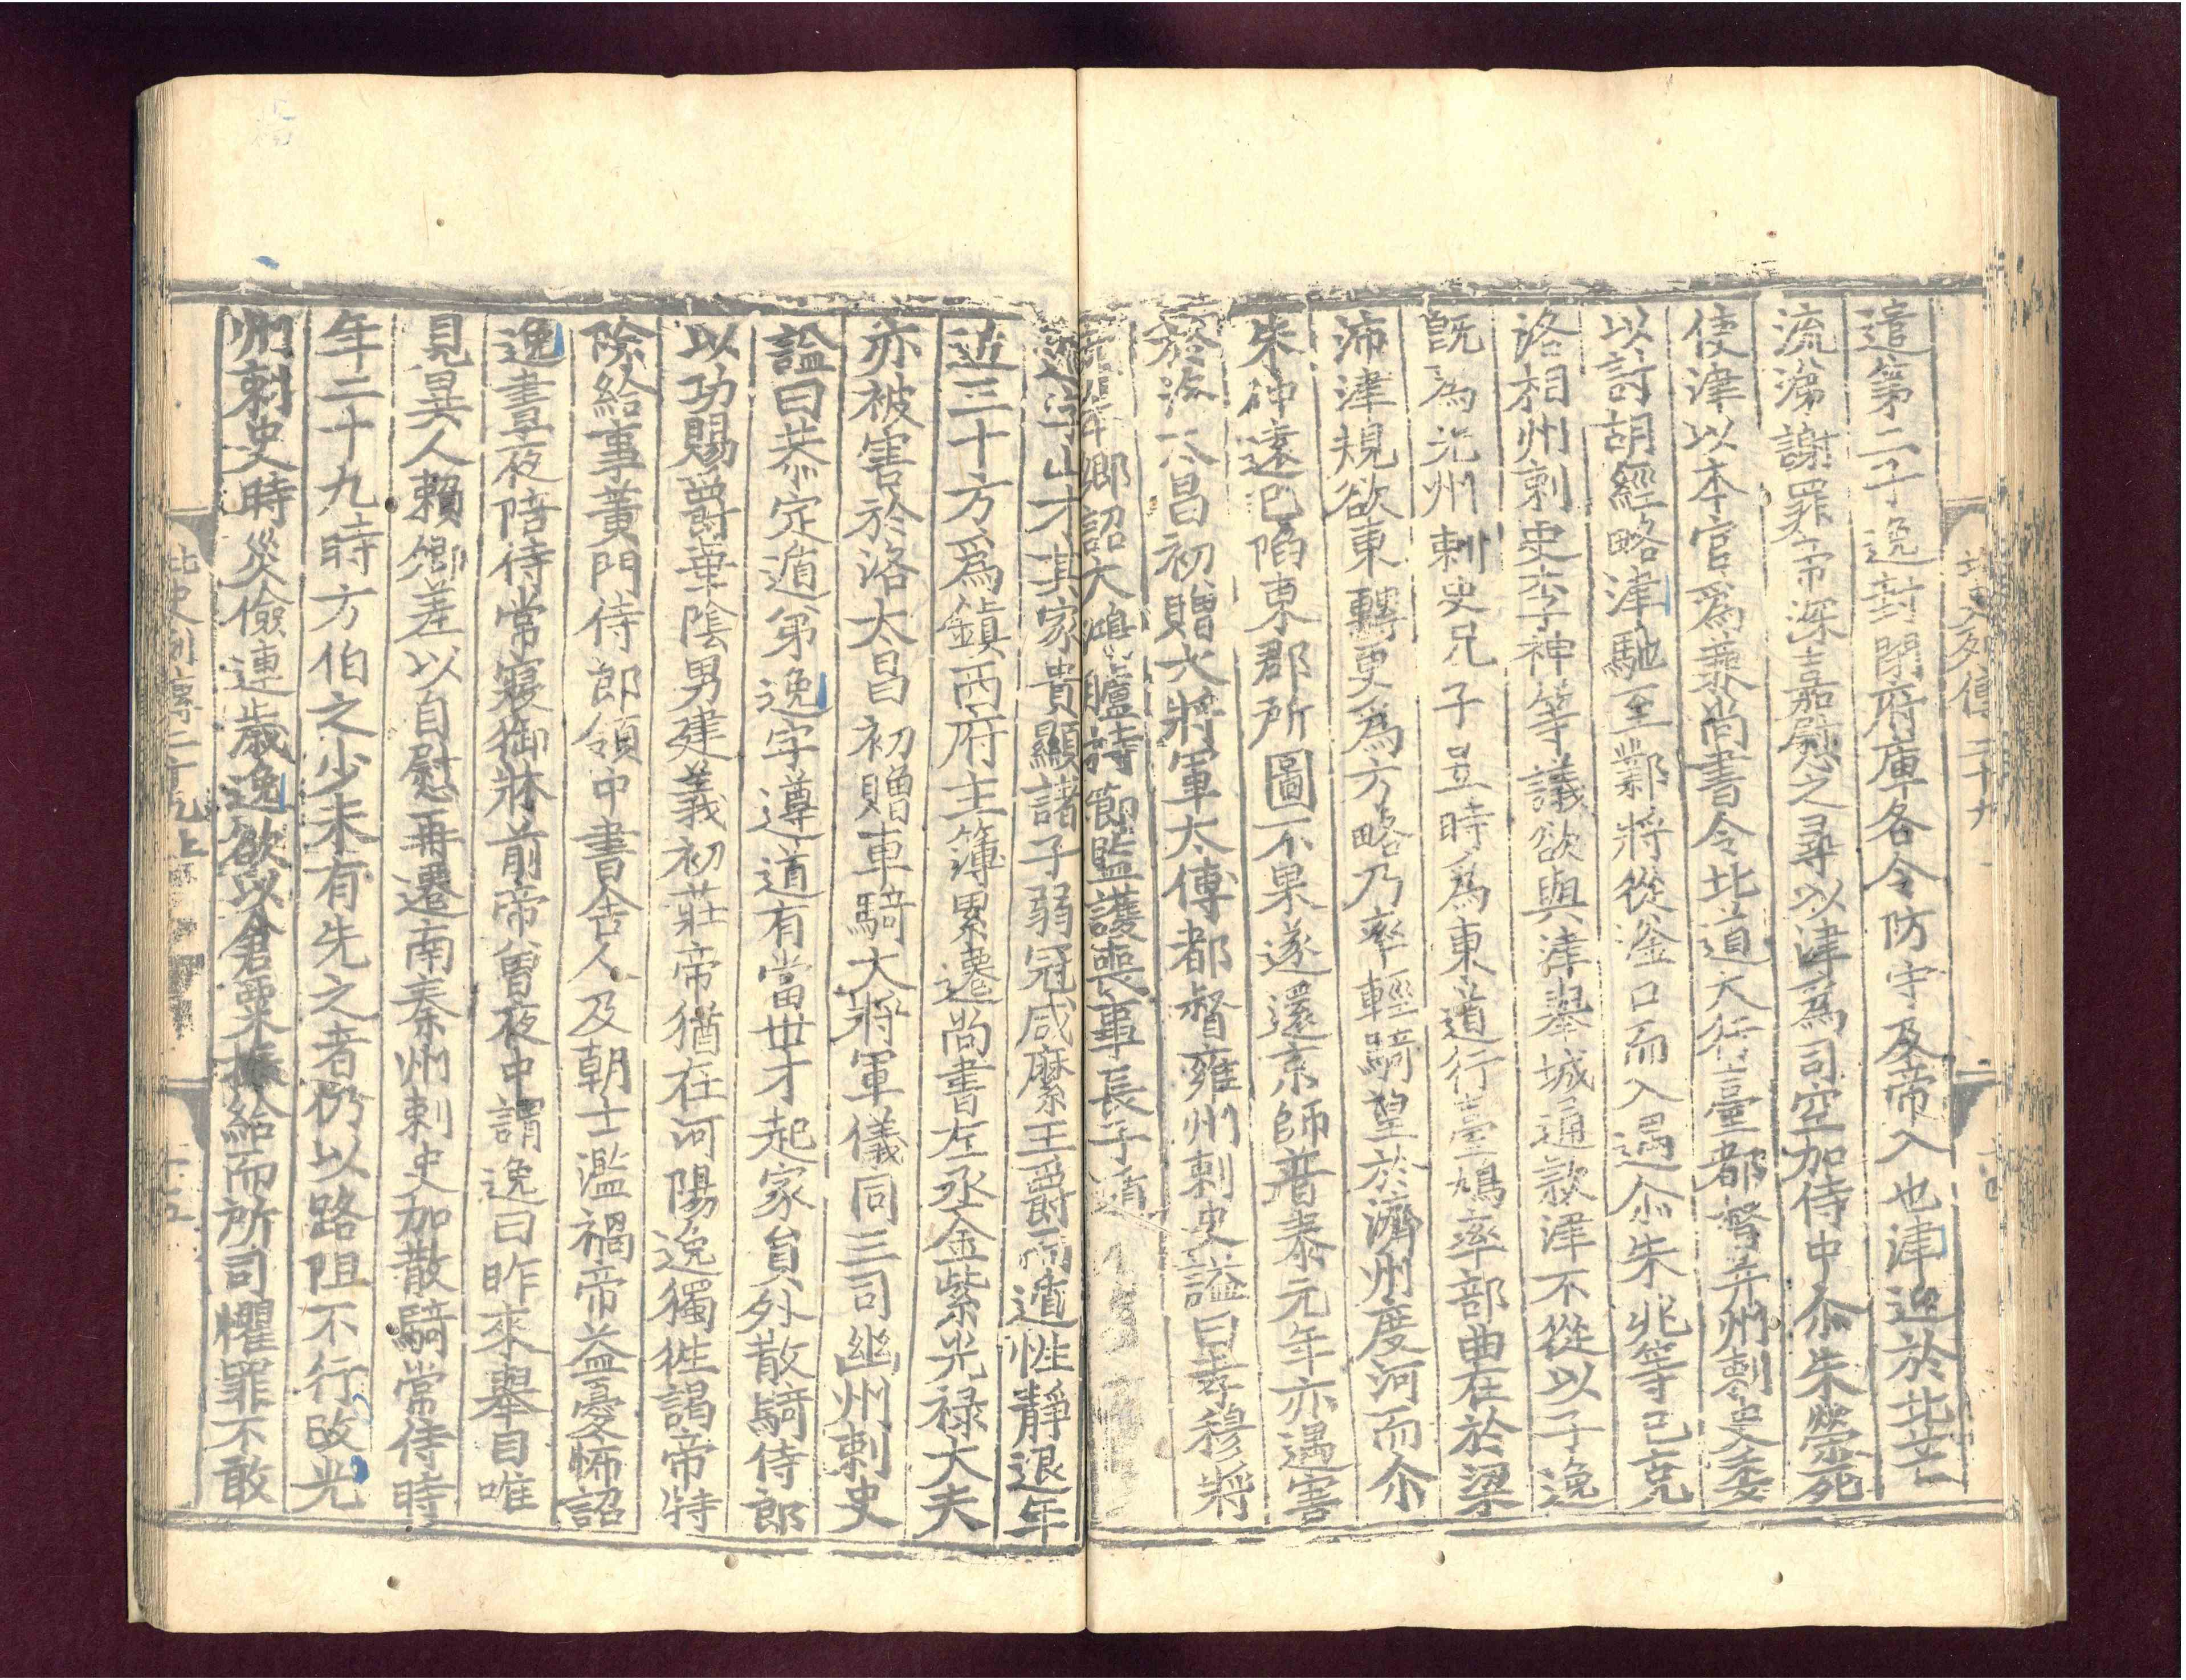 遣第二子逸封閉府庫各令防守及帝入也津迎於北芒
流涕謝罪帝深嘉慰之尋以津爲司空加侍中尒朱榮死
使津以本官爲兼尚書令北道大行臺都督并州刺史委
以討胡經略津馳至鄴將從滏口而入遇尒朱兆等已克
洛相州刺史李神等議欲與津舉城通款津不從以子逸
既爲光州刺史兄子昱時爲東道行臺鳩率部曲在於梁
沛津規欲東轉更爲方略乃率輕騎望於濟州度河而尒
朱仲遠已陷東郡所圖不果遂還京師普泰元年亦遇害
於洛太昌初贈大將軍太傅都督雍州刺史謚曰孝穆將
葬鄉詔大鴻臚持節監護喪事長子遁
遁字山才其家貴顯諸子弱冠咸縻王爵而遁性靜退年
近三十方爲鎮西府主簿累遷尚書左丞金紫光禄大夫
亦被害於洛太昌初贈車騎大將軍儀同三司幽州刺史
謚曰恭定遁弟逸字遵道有當世才起家員外散騎侍郎
以功賜爵華陰男建義初莊帝猶在河陽逸獨徃謁帝特
除給事黄門侍郎領中書舍人及朝士濫禍帝益憂怖詔
逸晝夜陪侍常寢御牀前帝曾夜中謂逸曰昨來舉目唯
見異人賴卿差以自慰再遷南秦州刺史加散騎常侍時
年二十九時方伯之少未有先之者仍以路阻不行改光
州刺史時災儉連歳逸欲以倉粟振給而所司懼罪不敢
北史列傳二十九上
十五
北史列傳二十九
十四